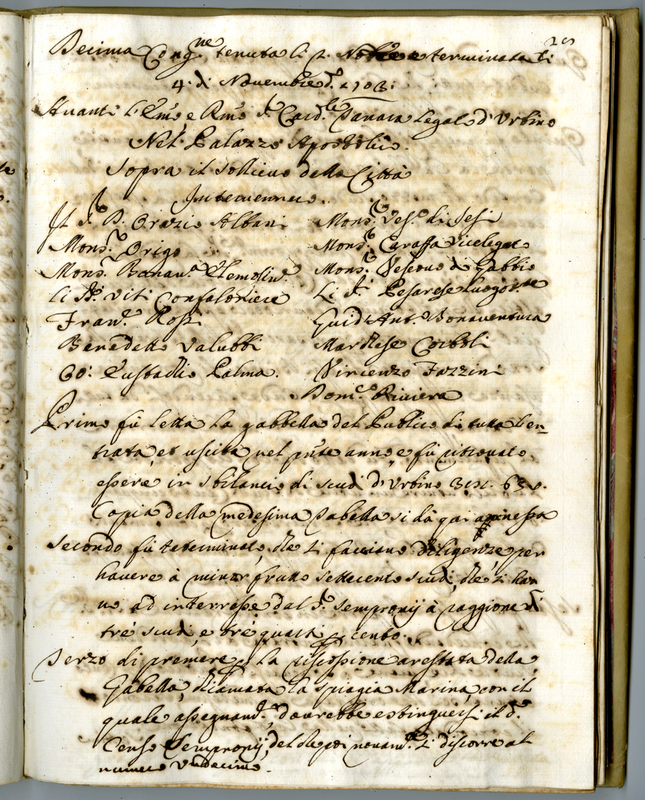 29
Decima Cong.ne tenuta li 2. Nobre e terminata li
4. di Novembre 1703.
Avanti l'Emo, e Rmo S. Card.le Tanara Legato d'Urbino
Nel Palazzo Apostolico.
Sopra il sollievo della Città
Intervennero.
Il S. D. Orazio Albani
Mons.r Ves.o di Jesi
Mons.r Origo
Mons.r Caraffa Vicelegato
Mons.r
Mons.r Vescovo di Gubbio
Li SS.ri Viti Confaloniere
Li SS.ri Pesarese Luogote
Fran.co Rosa
Guid'Ant. Bonaventura
Benedetto Valubbi
Marchese Corboli
Co: Eustachio Palma.
Vincenzo Fazzini
Dom.co Riviera
Primo fù letta la gabbella del Publico di tutta l'en=
trata, et uscita nel pnte anno, e fù ritrovato
essere in sbilancio di scudi d'Urbino
Copia della medesima Tabella si dà qui annessa
Secondo fù determinato, che si facciano diligenze per
havere à minor frutto settecento scudi, che si han=
no, ad interesse dal S. Sempronij à raggione di
trè scudi, e trè quarti p cento.
Terzo di premere p la riscossione arestata della
Gabella, chiamata la Spiagia Marina con il
quale assegnam.to, dovrebbe estinguersi il d.o
Censo Sempronij, del che poi novam.te si discorre al
numero Undecimo.